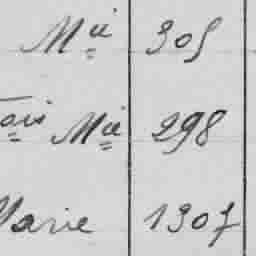 Mie 305
ois Mie 298
Marie 1307